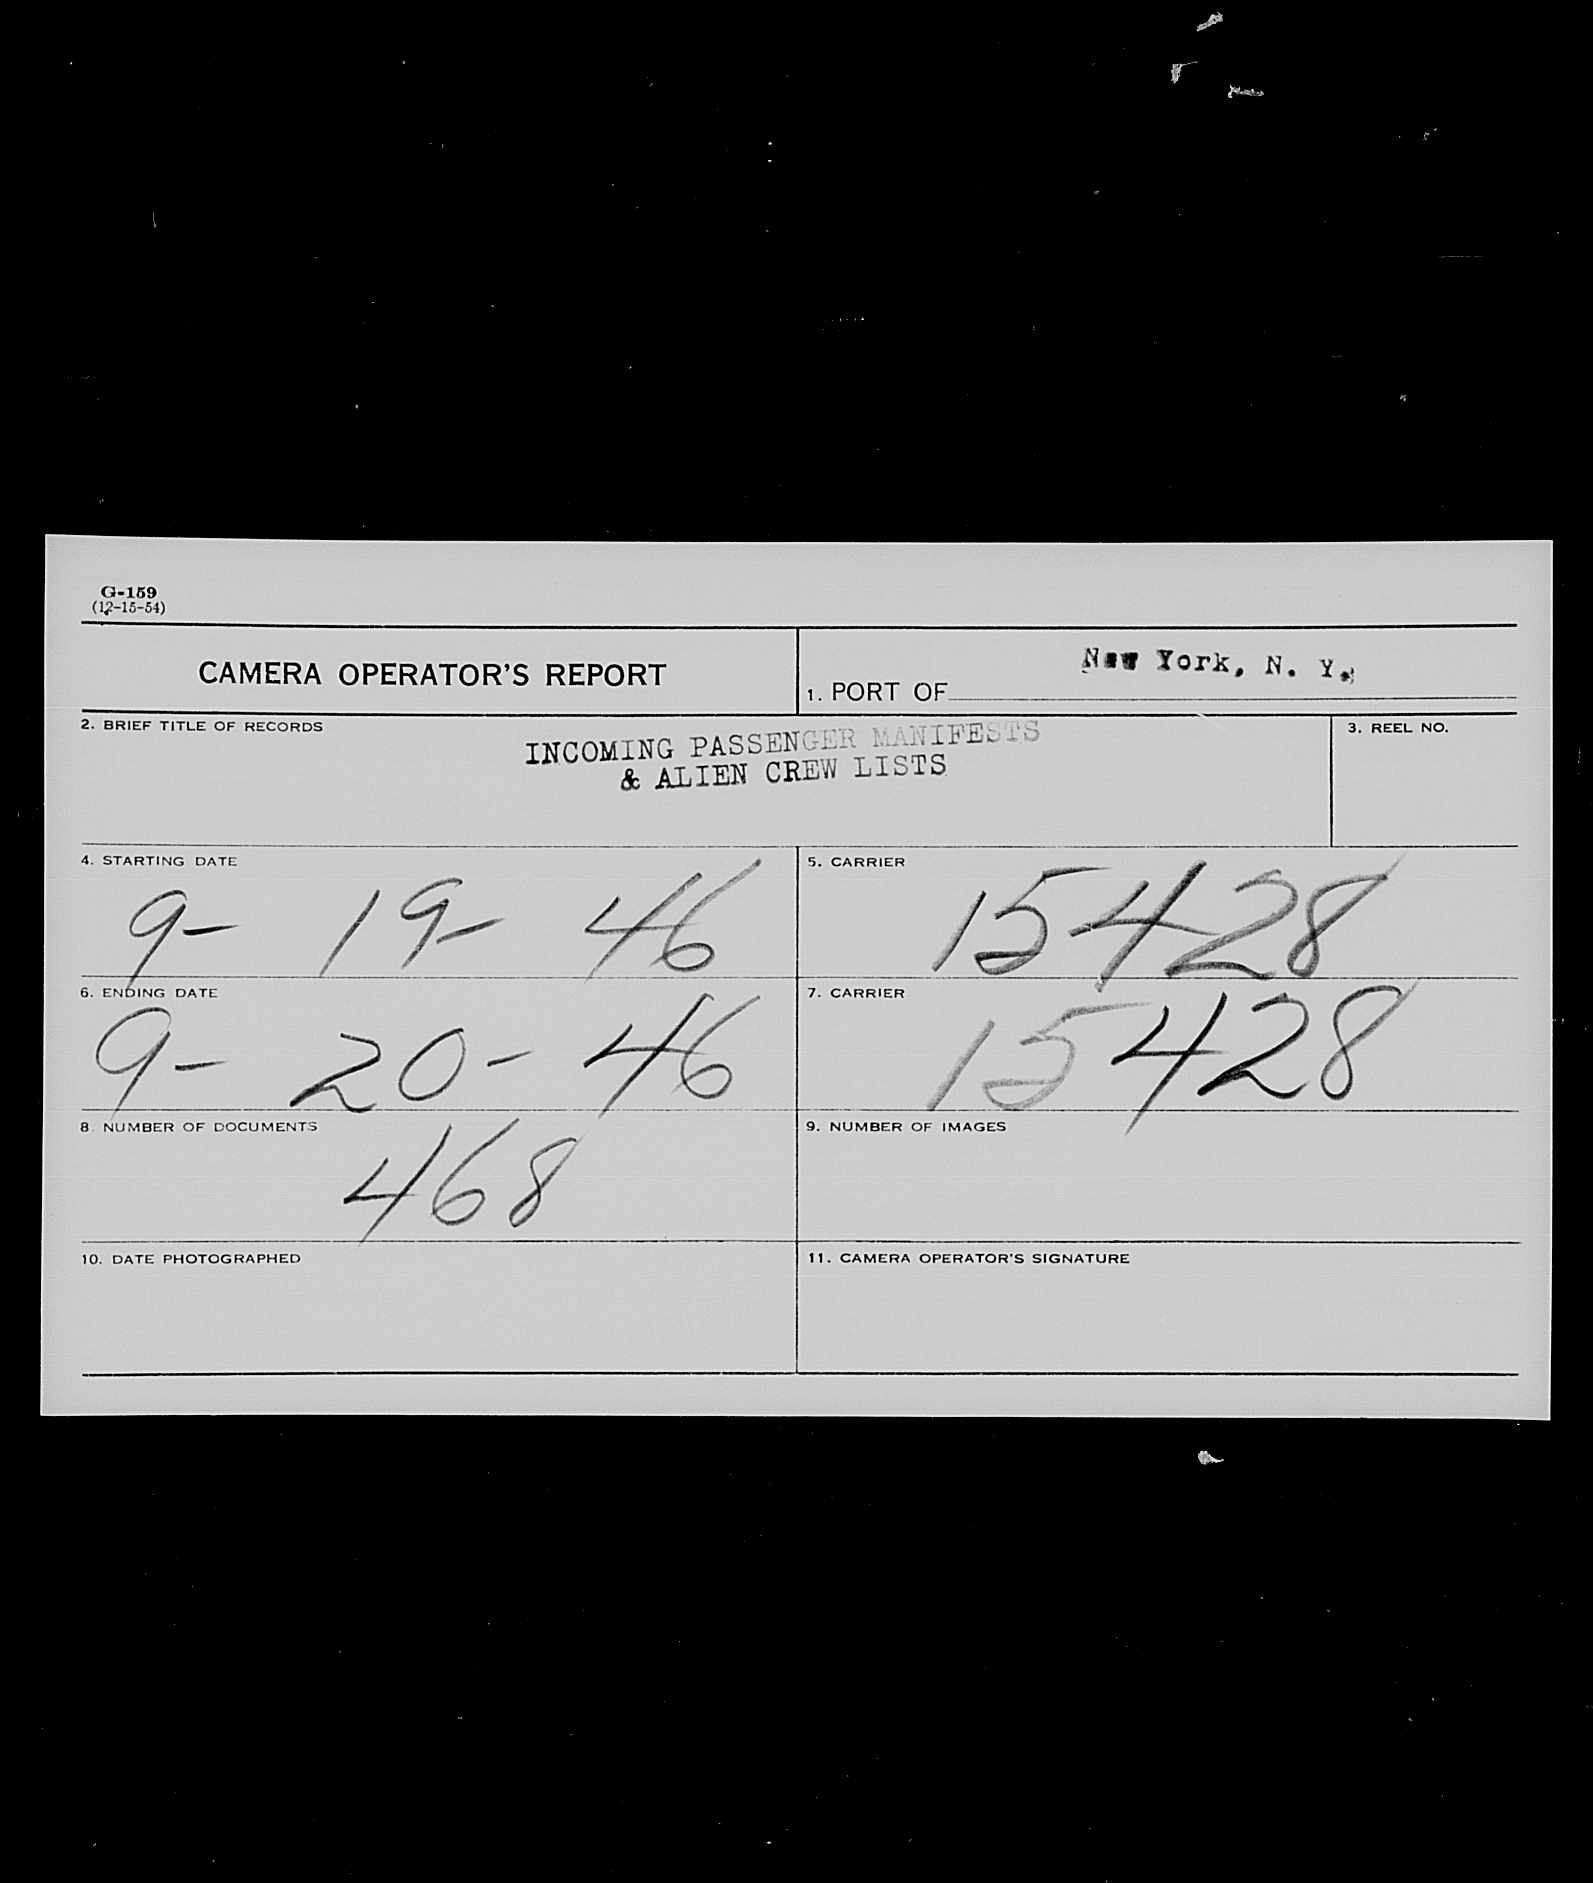 G-159
(12-15-54)
CAMERA OPERATOR'S REPORT
1. PORT OF New York, N. Y.
2. BRIEF TITLE OF RECORDS
INCOMING PASSENGER MANIFESTS
& ALIEN CREW LISTS
3. REEL NO.
4. STARTING DATE
9- 19- 46
5. CARRIER
15428
6. ENDING DATE
9- 20- 46
7. CARRIER
15428
8. NUMBER OF DOCUMENTS
468
9. NUMBER OF IMAGES
10. DATE PHOTOGRAPHED
11. CAMERA OPERATOR'S SIGNATURE